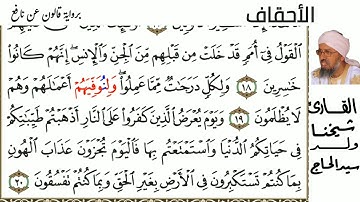 الأحقاف
برواية قالون عن نافع
القَوْلُ فِي أُمَمٍ قَدْ خَلَتْ مِن قَبْلِهِم مِّنَ الْجِنِّ وَالْإِنسِ إِنَّهُمْ كَانُوا
خَاسِرِينَ ١٨ وَلِكُلٍّ دَرَجَاتٌ مِّمَّا عَمِلُوا وَلِنُوَفِّيَهُمْ أَعْمَالَهُمْ وَهُمْ
لَا يُظْلَمُونَ ١٩ وَيَوْمَ يُعْرَضُ الَّذِينَ كَفَرُوا عَلَى النَّارِ أَذْهَبْتُمْ طَيِّبَاتِكُمْ
فِي حَيَاتِكُمُ الدُّنْيَا وَاسْتَمْتَعْتُم بِهَا فَالْيَوْمَ تُجْزَوْنَ عَذَابَ الْهُونِ
بِمَا كُنتُمْ تَسْتَكْبِرُونَ فِي الْأَرْضِ بِغَيْرِ الْحَقِّ وَبِمَا كُنتُمْ تَفْسُقُونَ ٢٠
القارئ
شيخنا
ولد
سيد الحاج